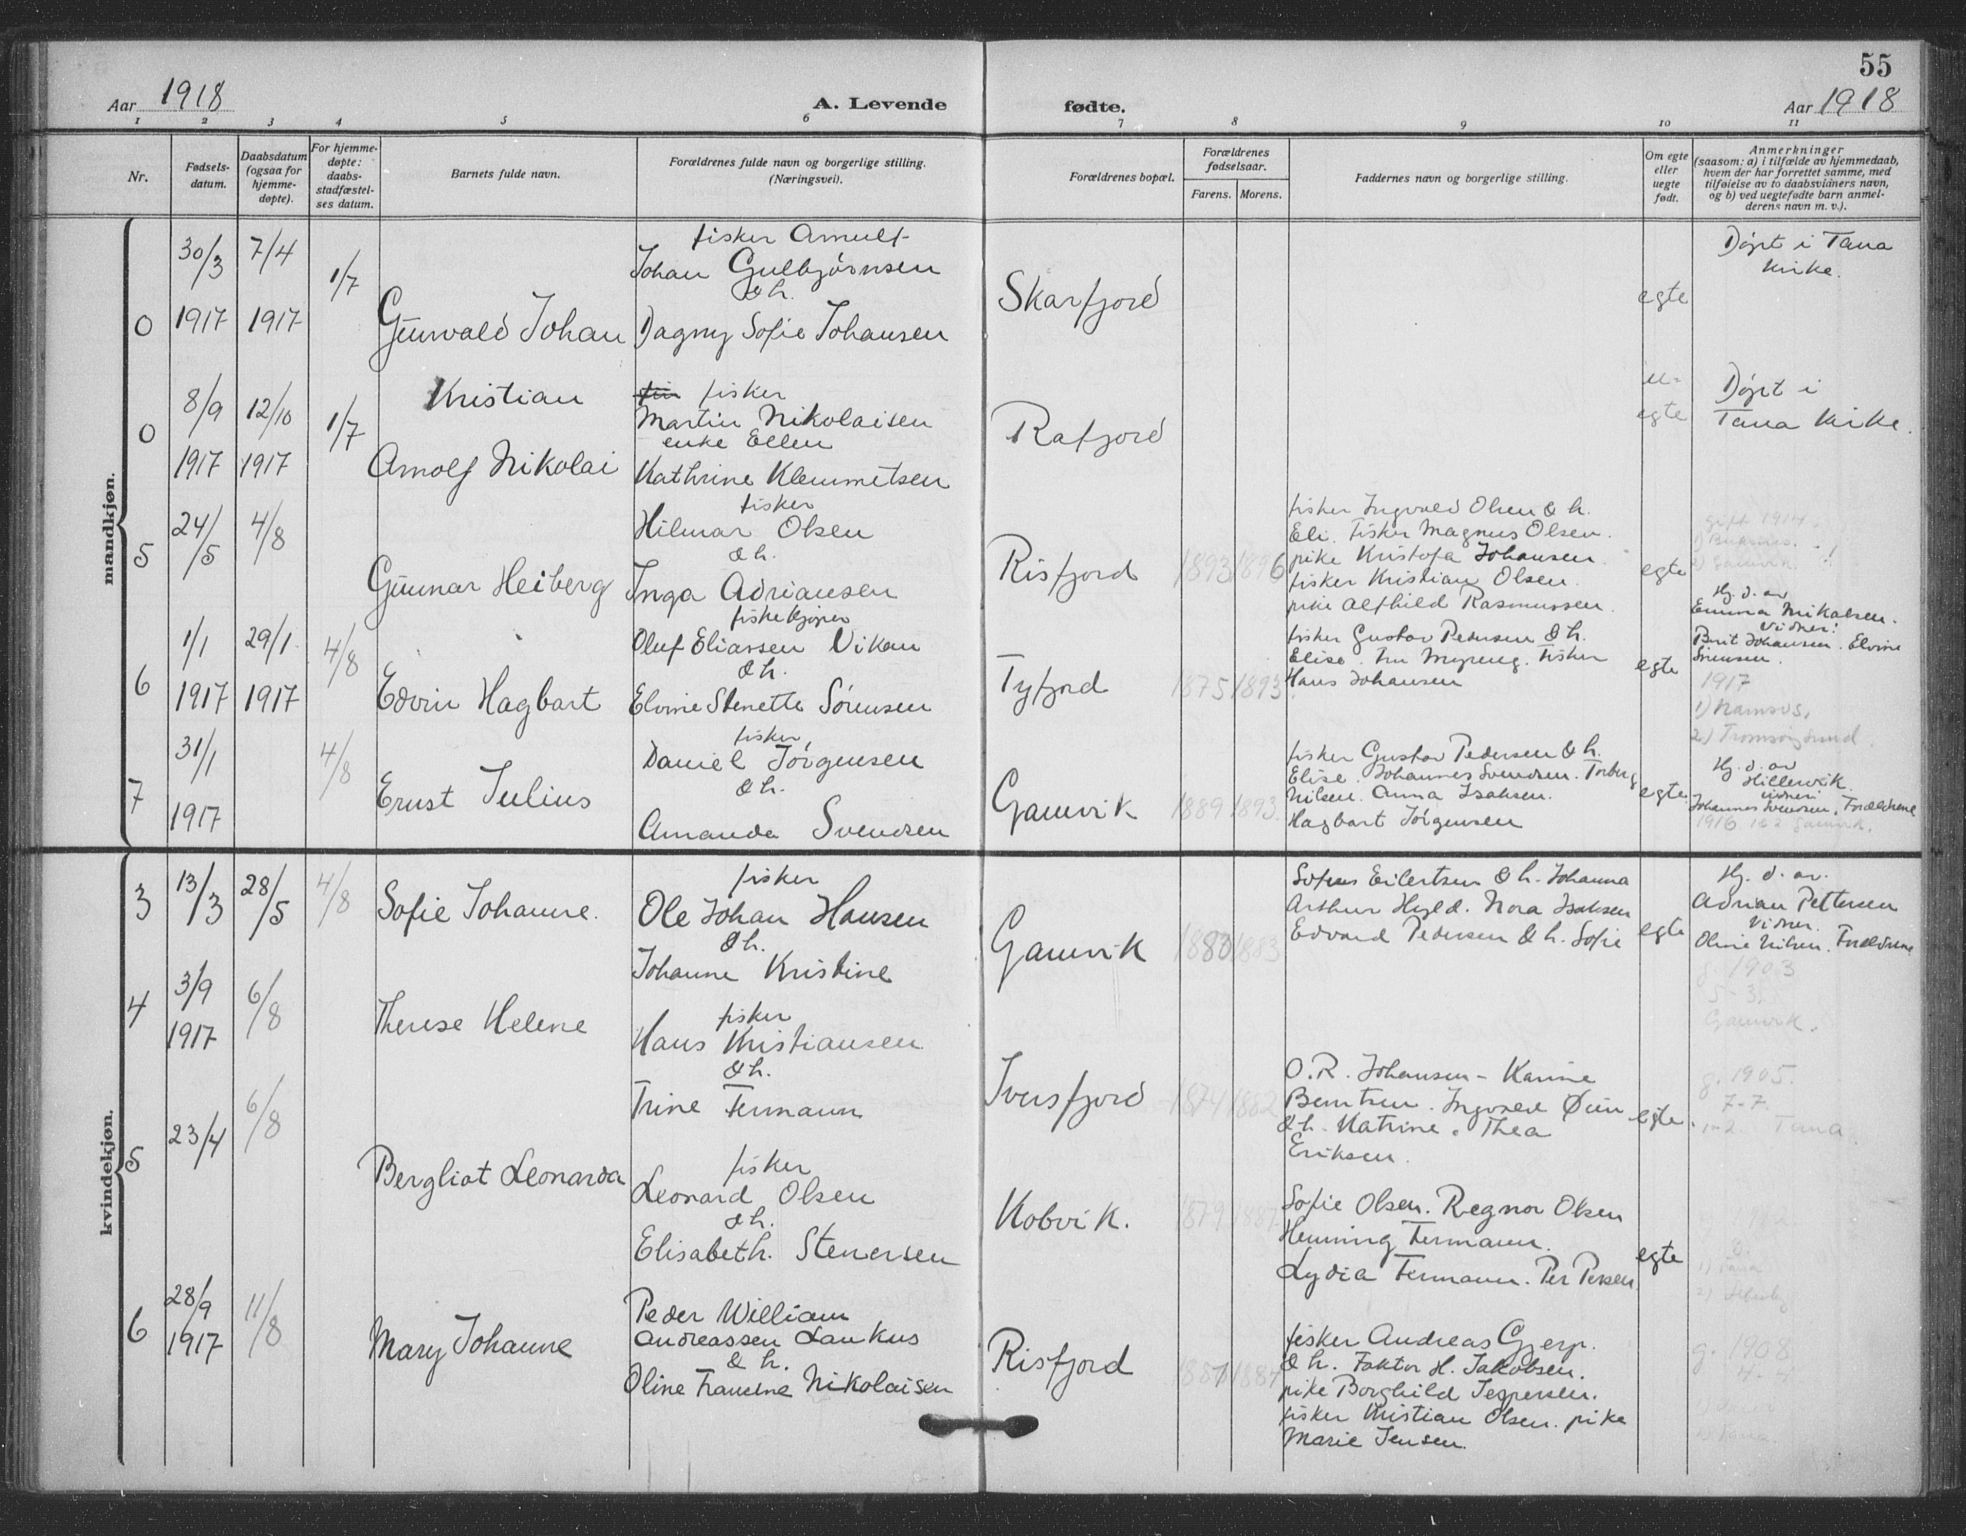 55
Aar 1918
A. Levende
fødte.
Aar 1918
1 2 3 4 5 6 7 8 9 10 11
Nr.
Fødsels-
datum.
Daabsdatum
(ogsaa for
hjemme-
døpte).
For hjemme-
døpte:
daabs-
stadfæstel-
ses datum.
Barnets fulde navn.
Forældrenes fulde navn og borgerlige stilling.
(Næringsvei).
Forældrenes bopæl.
Forældrenes
fødselsaar.
Farens. Morens.
Faddernes navn og borgerlige stilling.
Om egte
eller
uegte
født.
Anmerkninger
(saasom: a) i tilfælde av hjemmedaab,
hvem der har forrettet samme, med
tilføielse av to daabsvidners navn,
og b) ved uegtefødte barn anmel-
derens navn m. v.).
mandkjøn.
0
30/3
1917
7/4
1917
1/7
Gunvald Johan
fisker Arnulf
Johan Gulbjørnsen
& h.
Dagny Sofie Johansen
Skarfjord
egte
Døpt i Tana
kirke.
0
8/9
1917
12/10
1917
1/7
Kristian
Arnolf Nikolai
fisker
Martin Nikolaisen
enke Ellen
Kathrine Klemmetsen
Rafjord
u-
egte
Døpt i
Tana Kirke.
5
24/5
4/8
Gunnar Heiberg
fisker
Hilmar Olsen
& h.
Inga Adriansen
Risfjord
1893 1896
fisker Ingvald Olsen & h.
Eli. Fisker Magnus Olsen.
pike Kristofa Johansen
fisker Kristian Olsen.
pike Alfhild Rasmussen.
egte
gift 1914.
2) Gamvik.
6
1/1
1917
29/1
1917
4/8
Edvin Hagbart
fiskekjøper
Oluf Eliassen Vikan
& h.
Elvine Stenette Sørensen
Tyfjord
1875 1893
fisker Gustav Pedersen & h.
Elise. Fru Myreng. Fisker
Hans Johansen
egte
Hj. d. av
Emma Mikalsen.
Vidner:
Berit Johansen. Elvine
Sørensen.
1917
1) Namsos.
2) Tromsøysund.
7
31/1
1917
4/8
Ernst Julius
fisker
Daniel Jørgensen
& h.
Amanda Svendsen
Gamvik
1889 1893
fisker Gustav Pedersen & h.
Elise. Johannes Svendsen. Torberg
Nilsen. Anna Isaksen.
Hagbart Jørgensen
egte
Hj. d. av
Hillervik.
vidner:
Johannes Svensen. Forældrene
1916 1&2 Gamvik.
kvindekjøn.
3
13/3
28/5
4/8
Sofie Johanne.
fisker
Ole Johan Hansen
& h.
Johanne Kristine
Gamvik
1883 1883
Sofus Eilertsen & h. Johanna
Arthur Hyld. Nora Isaksen
Edvard Pedersen & h. Sofie
egte
Hj. d. av.
Adrian Pettersen
Vidner.
Oline Nilsen. Forældrene
g. 1903
5-3.
Gamvik.
4
3/9
1917
6/8
Therese Helene
fisker
Hans Kristiansen
& h.
Trine Fermann
Iversfjord
1874 1882
O. R. Johansen - Karine
Berntsen. Ingvald Øien
& h. Katrine. Thea
Eriksen.
egte.
g. 1905.
7-7
1-2 Tana
5
23/4
6/8
Bergliot Leonarda
fisker
Leonard Olsen
& h.
Elisabeth. Stenersen
Kobvik.
1879
Sofie Olsen. Regnor Olsen
Henning Fermann.
Lydia Fermann. Per Persen
egte
1) Tana
6
28/9
1917
11/8
Mary Johanne
Peder William
Andreassen Laukus
& h.
Oline Franene Nikolaisen
Risfjord
1887
fisker Andreas Gjerp.
& h. Faktor H. Jakobsen.
pike Borghild Jespersen.
fisker Kristian Olsen. pike
Marie Jensen.
g. 1908
4-4